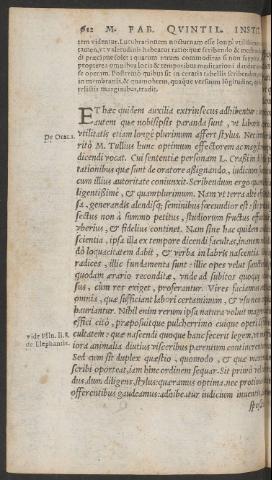 612 M. FAB. QVINTIL. INSTIT
tem videntur. Lucubrationem nocturnam esse
tatem, vt valetudinis habeatur ratio: quæ scribendo & meditando
di præcipue solet: quatenus rerum commoditati sit
præpterea omnibus locis & temporibus
se operam. Postremo quibus sit in ceratis tabellis scribendum,
in membranis, & quamobrem, quæque versuum longitudo,
relictis marginibus, tradit.
ET hæc quidem auxilia extrinsecus adhibentur: in
autem quæ nobis ipsis paranda sunt, vt laboris
vtilitatis etiam longè plurimum affert stylus. Nec
De Orat.1. ritò M. Tullius hunc optimum effectorem ac magistrum
dicendi vocat. Cui sententiæ personam L. Crassi in
tationibus quæ sunt de oratore aßignando, iudicium
cum illius autoritate coniunxit. Scribendum ergo quam
ligentißimè, & quamplurimum. Nam vt terra altè
sa, generandis alendisq; seminibus fœcundior est: sic
fectus non à summo petitus, studiorum fructus
vberius, & fidelius continet. Nam sine hac quidem
scientia, ipsa illa ex tempore dicendi facultas, inanem
dò loquacitatem dabit, & verba in labris nascentia. Illic
radices, illic fundamenta sunt: illic opes velut sanctiore
quodam ærario reconditæ, vnde ad subitos quoque
sus, cùm res exiget, proferantur. Vires faciamus ante
omnia, quæ sufficiant labori certaminum, & vsu non
hauriantur. Nihil enim rerum ipsa natura voluit magnum
effici citò, præposuitque pulcherrimo cuique operi
vide Plin. li.8. cultatem: quæ nascendi quoque hanc fecerit legem, vt
de Elephantis. iora animalia diutius visceribus parentum continerentur.
Sed cum sit duplex quæstio, quomodo, & quæ
scribi oporteat, iam hinc ordinem sequar. Sit primò vel
dus, dum diligens, stylus: quæramus optima, nec protinus
offerentibus gaudeamus: adhibeatur iudicium inuentis,